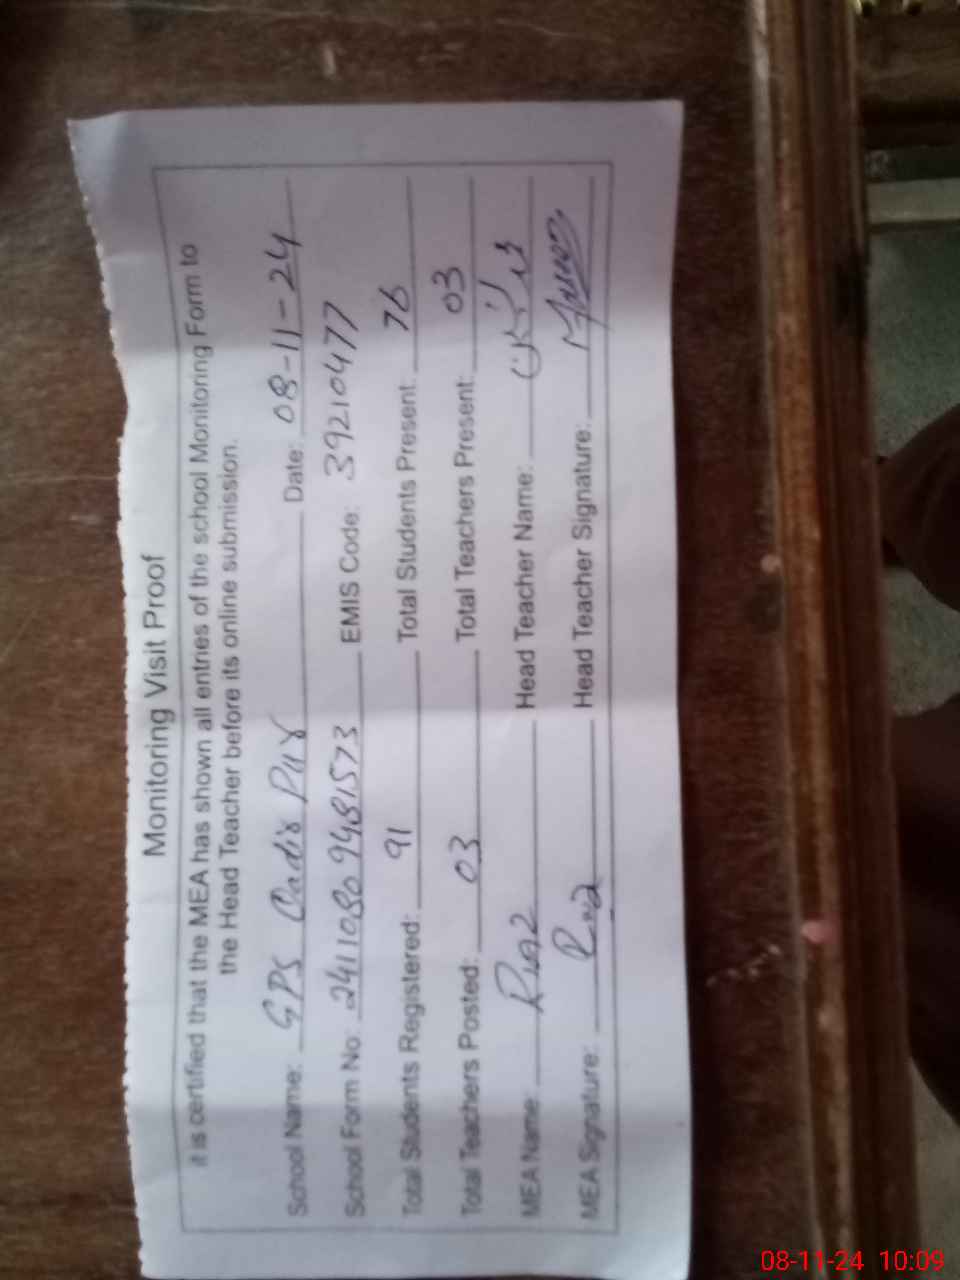 Monitoring Visit Proof
it is certified that the MEA has shown all entries of the school Monitoring Form to
the Head Teacher before its online submission.
School Name: GPS Qadir Pur Date: 08-11-24
School Form No: 24110809481573 EMIS Code: 39210477
Total Students Registered: 91 Total Students Present: 76
Total Teachers Posted: 03 Total Teachers Present: 03
MEA Name: Riaz Head Teacher Name:
MEA Signature: Riaz Head Teacher Signature:
08-11-24 10:09